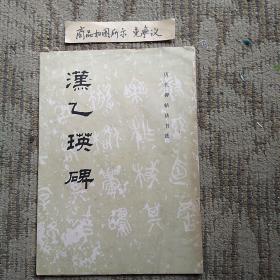 商品如图所示 免争议
漢乙瑛碑
历代碑帖法书选